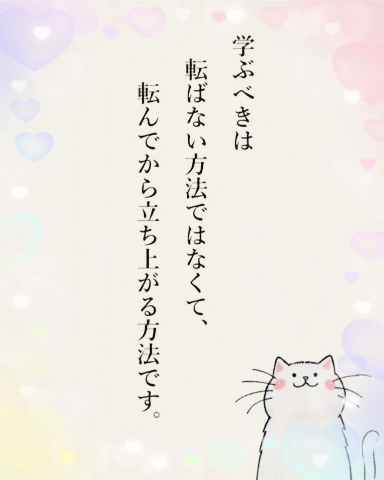 学ぶべきは
転ばない方法ではなくて、
転んでから立ち上がる方法です。